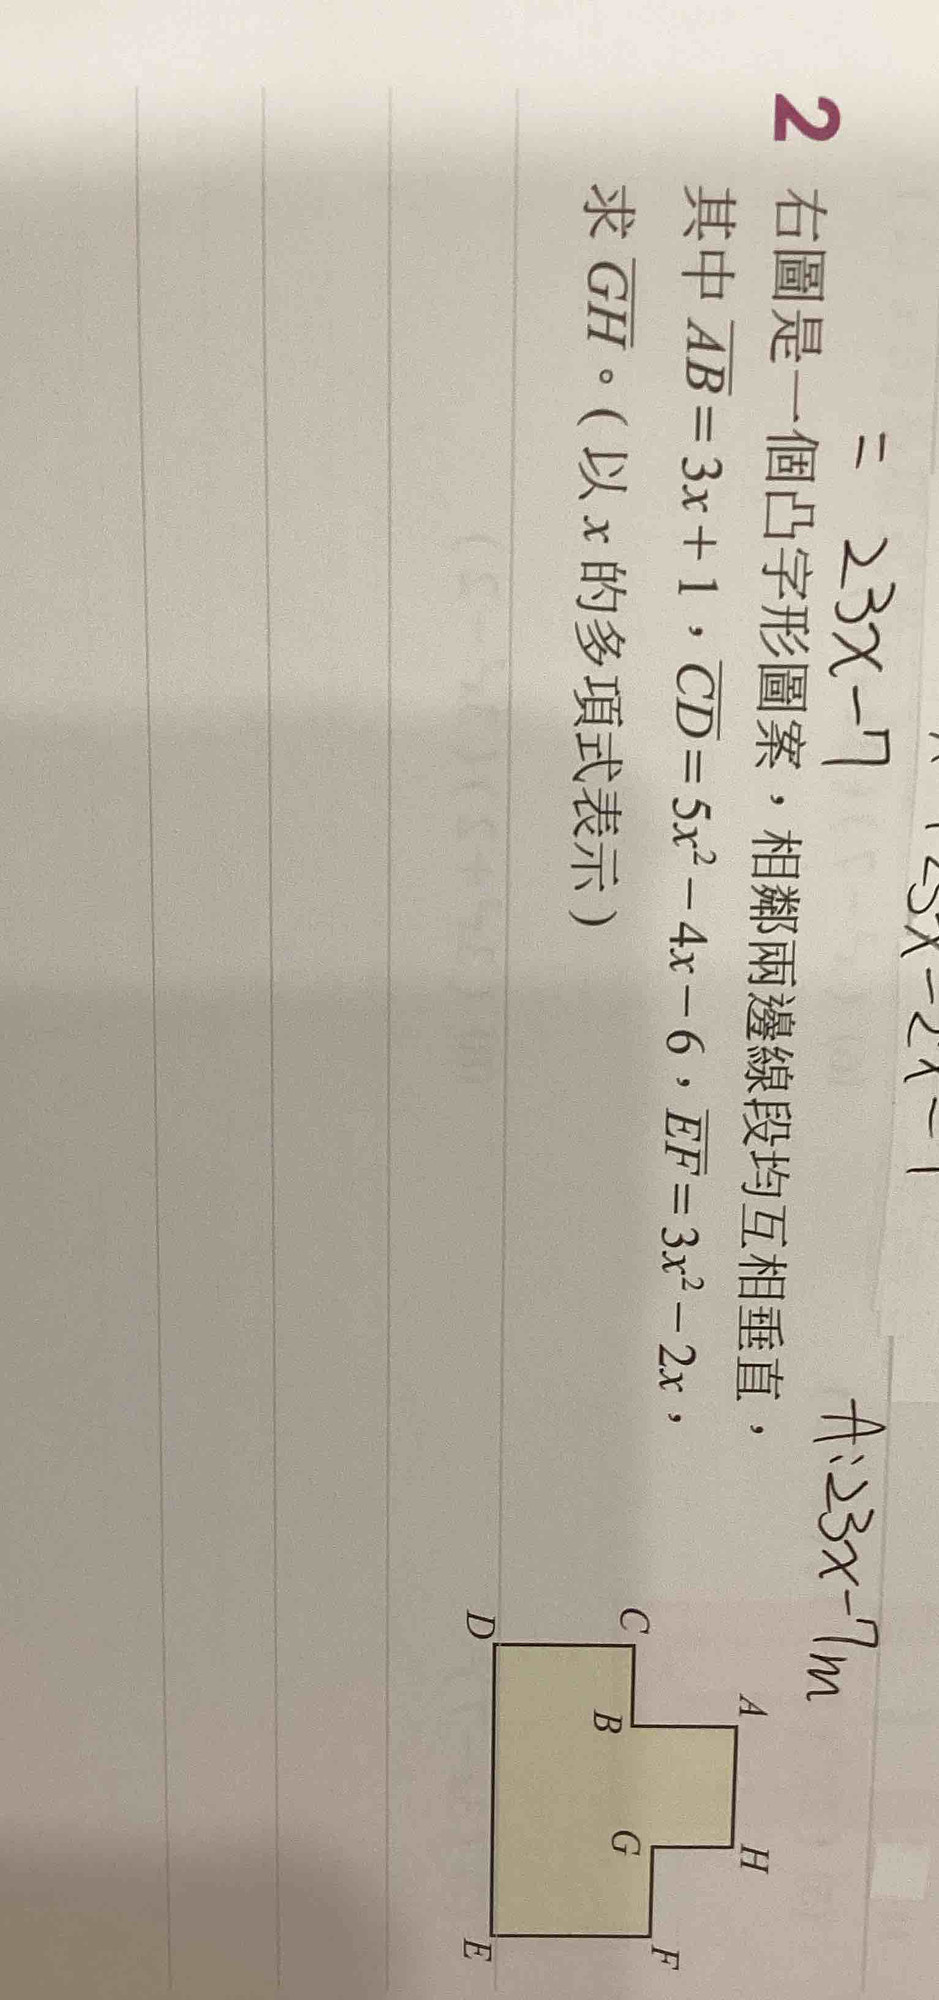 = 23x-7
A:23x-7m
2 右圖是一個凸字形圖案，相鄰兩邊線段均互相垂直，
其中 AB=3x+1，CD=5x²-4x-6，EF=3x²-2x，
求 GH。(以 x 的多項式表示)
A
H
C
B
G
F
D
E